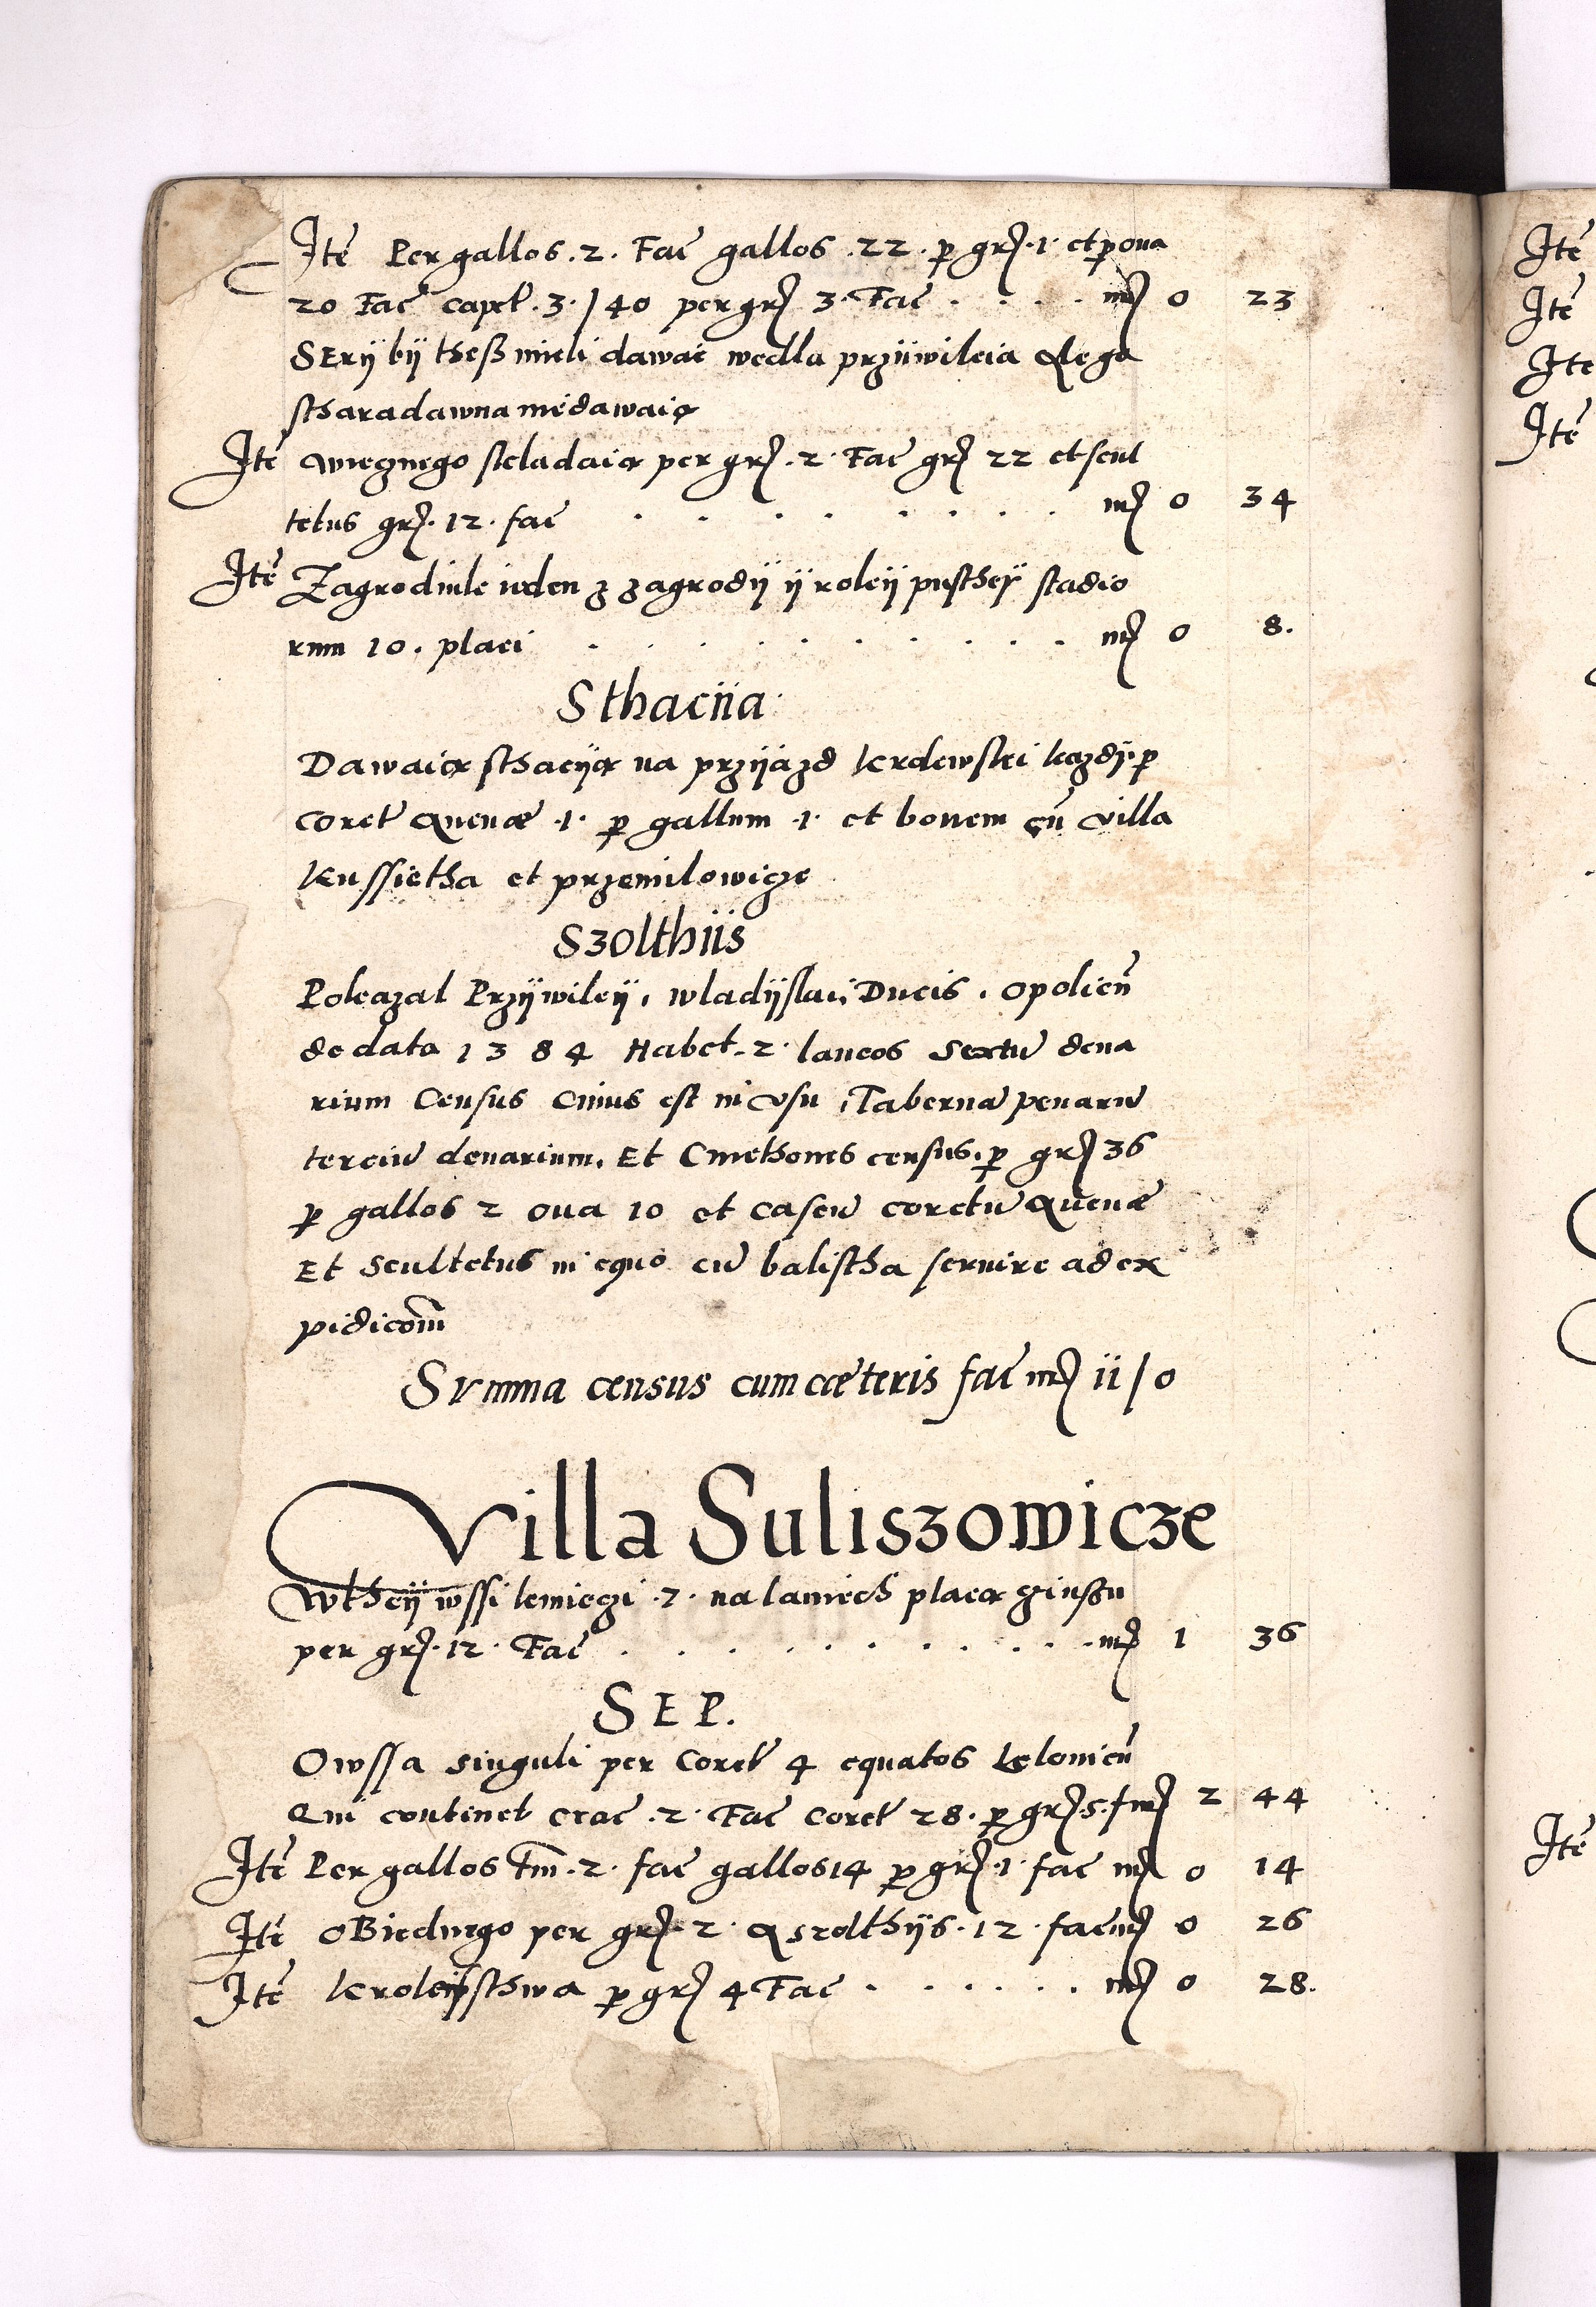 Ite̅ Per gallos .2. Fac̅ gallos .22. p̱ gr̅ .1. et p̱ ova
20 Fac̅ capet̅ .3. / 40 per gr̅ 3. Fac̅ . . . . mr̅ 0 23
SErÿ bÿ theß mieli dawac wedla przÿwileia A lega
stharadawna niedawaią
Ite̅ wiecznego skladaią per gr̅ .2. Fac̅ gr̅ 22 et scul
tetus gr̅ .12. fac̅ . . . . . . . . mr̅ 0 34
Ite̅ Zagrodnik ieden z zagrodÿ ÿ roleÿ pustheÿ stadio
rum 10. placi . . . . . . . . mr̅ 0 8.
Sthacÿa
Dawaią sthacÿą na przÿiazd krolewski kazdÿ p̱
coret̅ Avenæ .1. p̱ gallum .1. et bovem cu̅ villa
Kussietha et przemilowicze
Szolthÿs
Pokazal Przÿwileÿ, wladÿslai Ducis. Opolien̅
de data 1384 Habet .2. laneos Sextu̅ dena
rium Census Cuius est in vsu, Taberna̅ penariu̅
terciu̅ denarium. Et Cmethones census. p̱ gr̅ 36
p̱ gallos 2 ova 10 et caseu̅ coretu̅ Avenæ
Et Scultetus in equo cu̅ balistha servire ad ex
pidicom̅
Summa census cum cæteris fac̅ mr̅ ii / 0
Villa Suliszowicze
Wtheÿ wssi kmieczi .7. na laniech placą czinszu
per gr̅ .12. Fac̅ . . . . . . . . mr̅ 1 36
SEP.
Owssa singuli per Coret̅ 4 equatos Lelovien̅
Qui continet crac̅ .2. Fac̅ Coret̅ 28. p̱ gr̅ .5. f mr̅ 2 44
Ite̅ Per gallos tm̅ .2. fac̅ gallos 14 p̱ gr̅ .1. fac̅ mr̅ 0 14
Ite̅ OBiednego per gr̅ .2. A szolthÿs .12. fac̅ mr̅ 0 26
Ite̅ Krolewsthwa p̱ gr̅ 4 Fac̅ . . . . . . mr̅ 0 28.
Ite̅
Ite̅
Ite
Ite̅
Ite̅